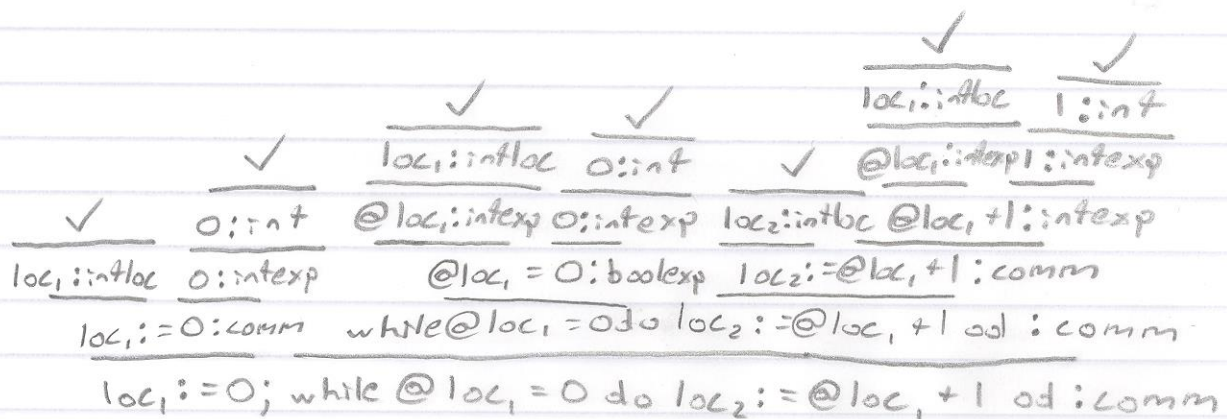 ✓
✓
loc₁:intloc 1:int
✓ ✓
✓ loc₁:intloc 0:int ✓ @loc₁:intexp 1:intexp
✓ 0:int @loc₁:intexp 0:intexp loc₂:intloc @loc₁ +1:intexp
loc₁:intloc 0:intexp @loc₁ = 0:boolexp loc₂:=@loc₁ +1:comm
loc₁:=0:comm while @loc₁ =0 do loc₂:=@loc₁ +1 od : comm
loc₁:=0; while @loc₁ = 0 do loc₂:=@loc₁ +1 od : comm